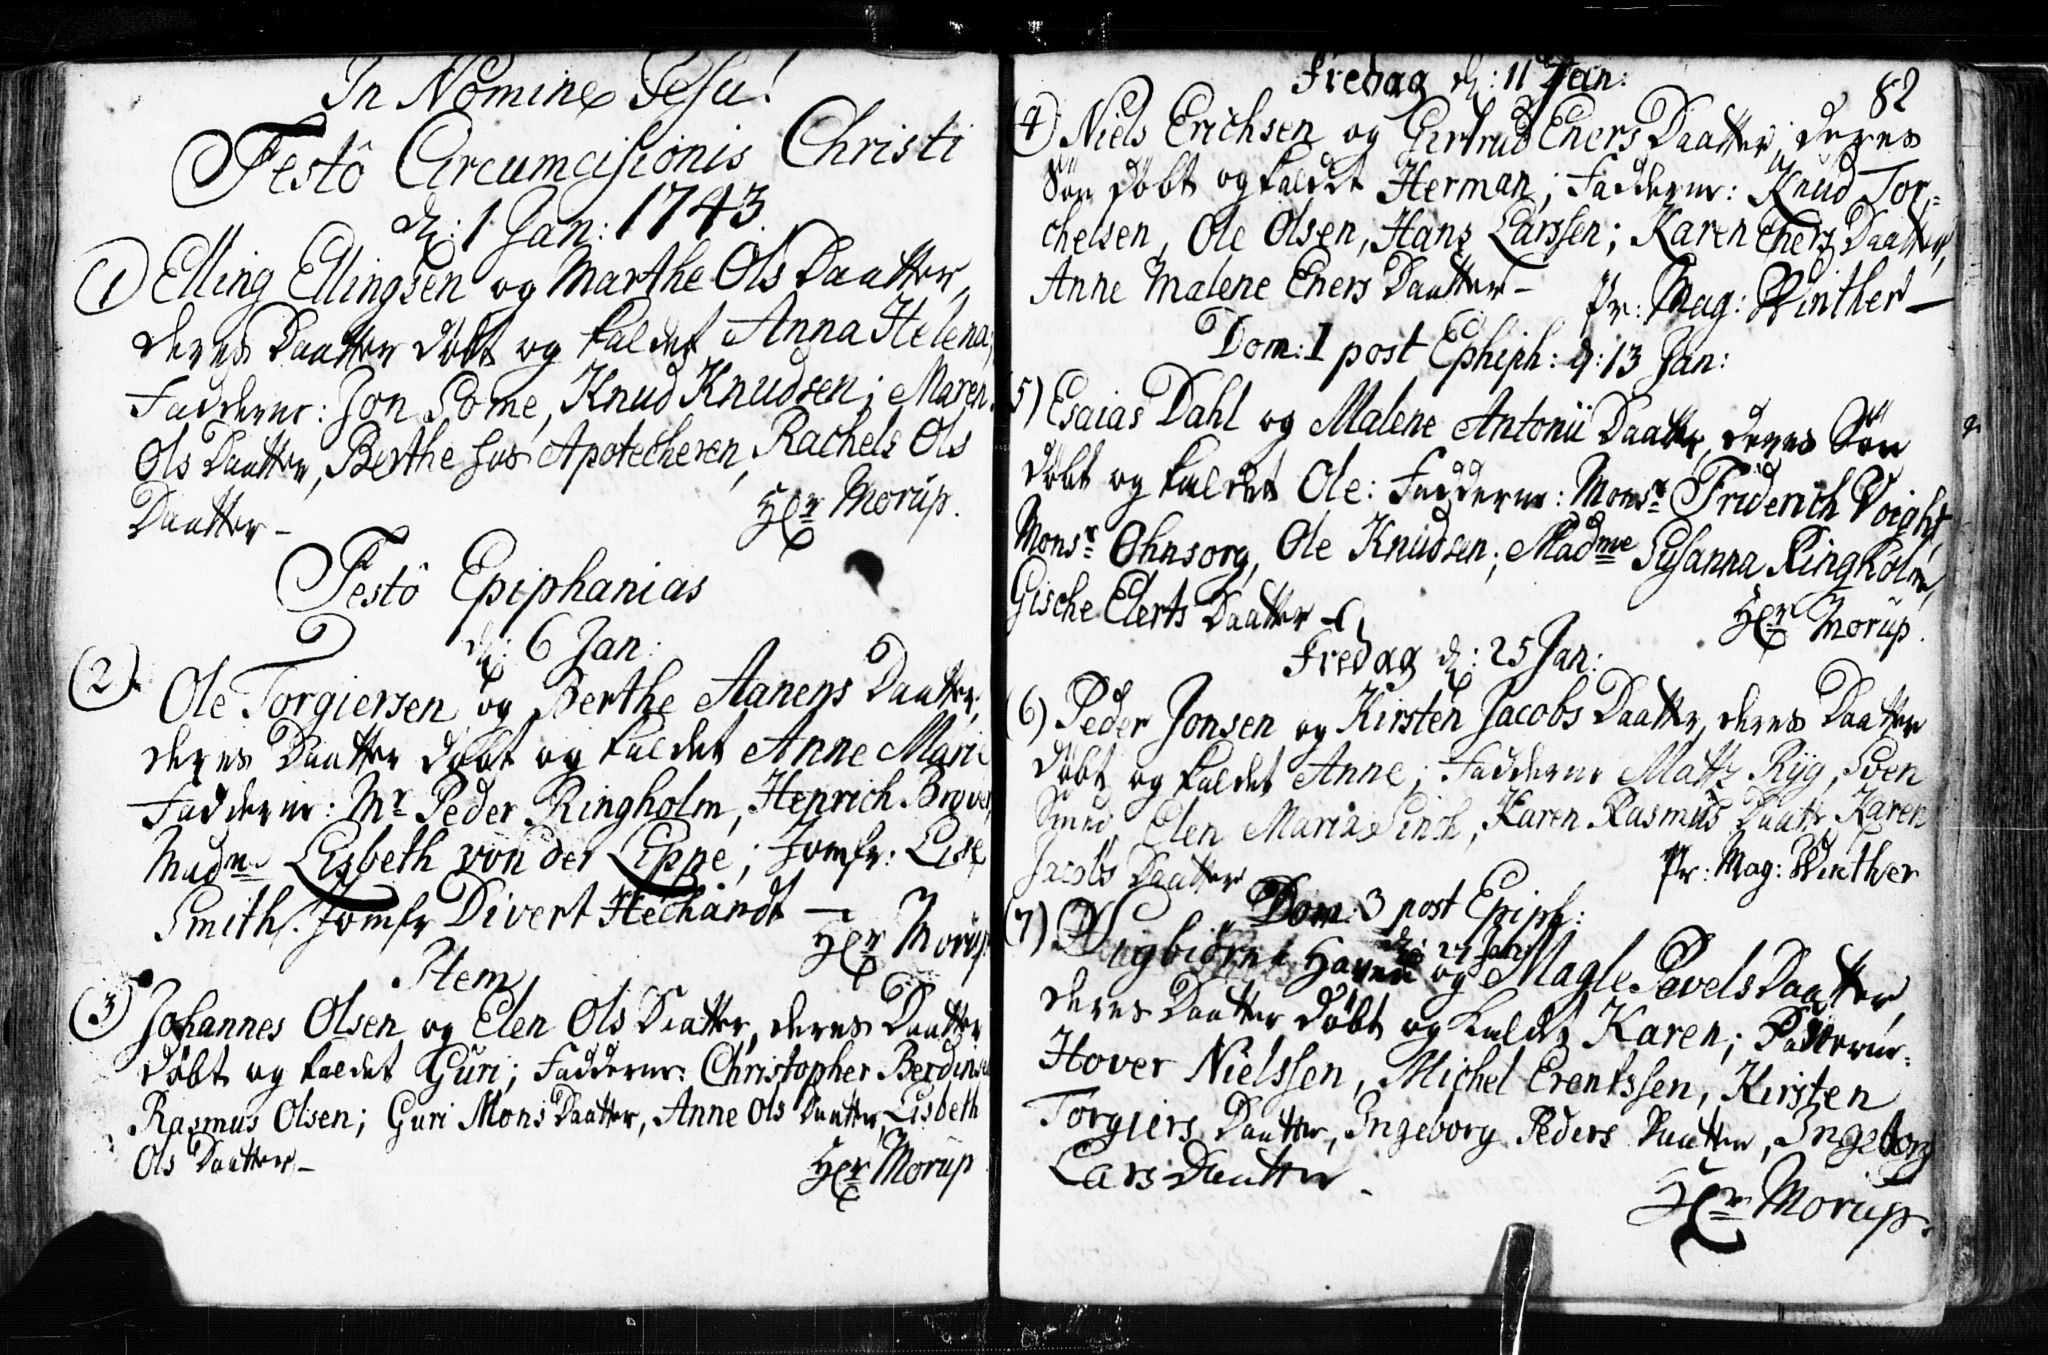 In Nomine Jesu!
Festô Circumcisionis Christi
d: 1 Jan: 1743.
1) Elling Ellingsen og Marthe Ols Daatter,
deres Daatter döbt og kaldet Anna Helena;
Fadderne: Jon Some, Knud Knudsen; Maren
Ols Daatter, Berthe hos Apotecheren, Rachels Ols
Daatter –
Hr Morup.
Festô Epiphanias
d: 6 Jan:
2) Ole Torgiersen og Berthe Aanens Daatter,
deres Daatter döbt og kaldet Anne Marie
Fadderne: Mr Peder Ringholm, Henrich Brover
Madme Lisbeth von der Lippe; Jomfr: Lise
Smith. Jomfr Divert Hechandt –
Hr Morup.
Item
3) Johannes Olsen og Elen Ols Daatter, deres Daatter
döbt og kaldet Guri; Fadderne: Christopher Berdinsen
Rasmus Olsen; Guri Mons Daatter, Anne Ols Daatter, Lisbeth
Ols Daatter –
Hr Morup
82
Fredag d: 11 Jan:
4) Niels Erichsen og Girtrud Eners Daatter, deres
Sön döbt og kaldet Herman; Fadderne: Knud Tor-
chelsen, Ole Olsen, Hans Larssen; Karen Eners Daatter,
Anne Malene Eners Daatter –
Pr: Mag: Winther –
Dom: 1 post Ephiph: d: 13 Jan:
5) Esaias Dahl og Malene Antonii Daatter, deres Sön
döbt og kaldet Ole: Fadderne: Monsr Friderich Voight,
Monsr Ohnsorg, Ole Knudsen; Madme Susanna Ringholm,
Gische Elerts Daatter –
Hr Morup.
Fredag d: 25 Jan:
6) Peder Jonsen og Kirsten Jacobs Daatter, deres Daatter
döbt og kaldet Anne; Fadderne Matts Ryg, Sven
Smed, Elen Maria Finch, Karen Rasmus Daatter Karen
Jacobs Daatter
Pr: Mag: Winther
Dom: 3 post Epiph:
d: 27 Jan:
7) Haven og Magle Pavels Daatter,
deres Daatter döbt og kaldet Karen; Fadderne:
Hover Nielssen, Michel Erentssen, Kirsten
Torgiers Daatter, Ingeborg Peders Daatter, Ingeborg
Lars Daatter.
Hr Morup.